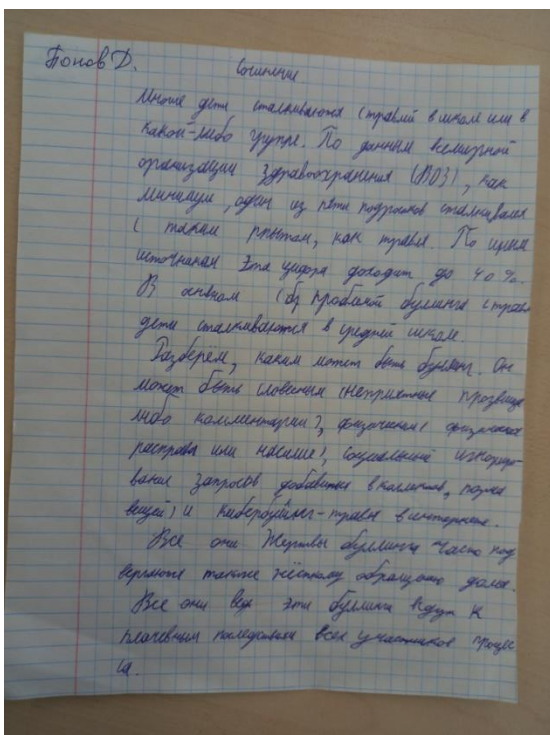 Попов Д.
Сочинение
Многие дети сталкиваются с травлей в школе или в
какой-либо группе. По данным всемирной
организации здравоохранения (ВОЗ), как
минимум, один из пяти подростков сталкивался
с таким опытом, как травля. По иным
источникам эта цифра доходит до 40%.
В основном с проблемой буллинга
дети сталкиваются в средней школе.
Разберём, каким может быть буллинг. Он
может быть словесным (неприятные прозвища
либо комментарии), физическим (физическая
расправа или насилие), социальный игнориро-
вание запросов добавиться в коллектив, порча
вещей) и кибербуллинг-травля в интернете.
Все они. Жертвы буллинга часто под
вергаются также жёсткому обращению дома.
Все они эти буллинги ведут к
плачевным последствиям всех участников процес
са.